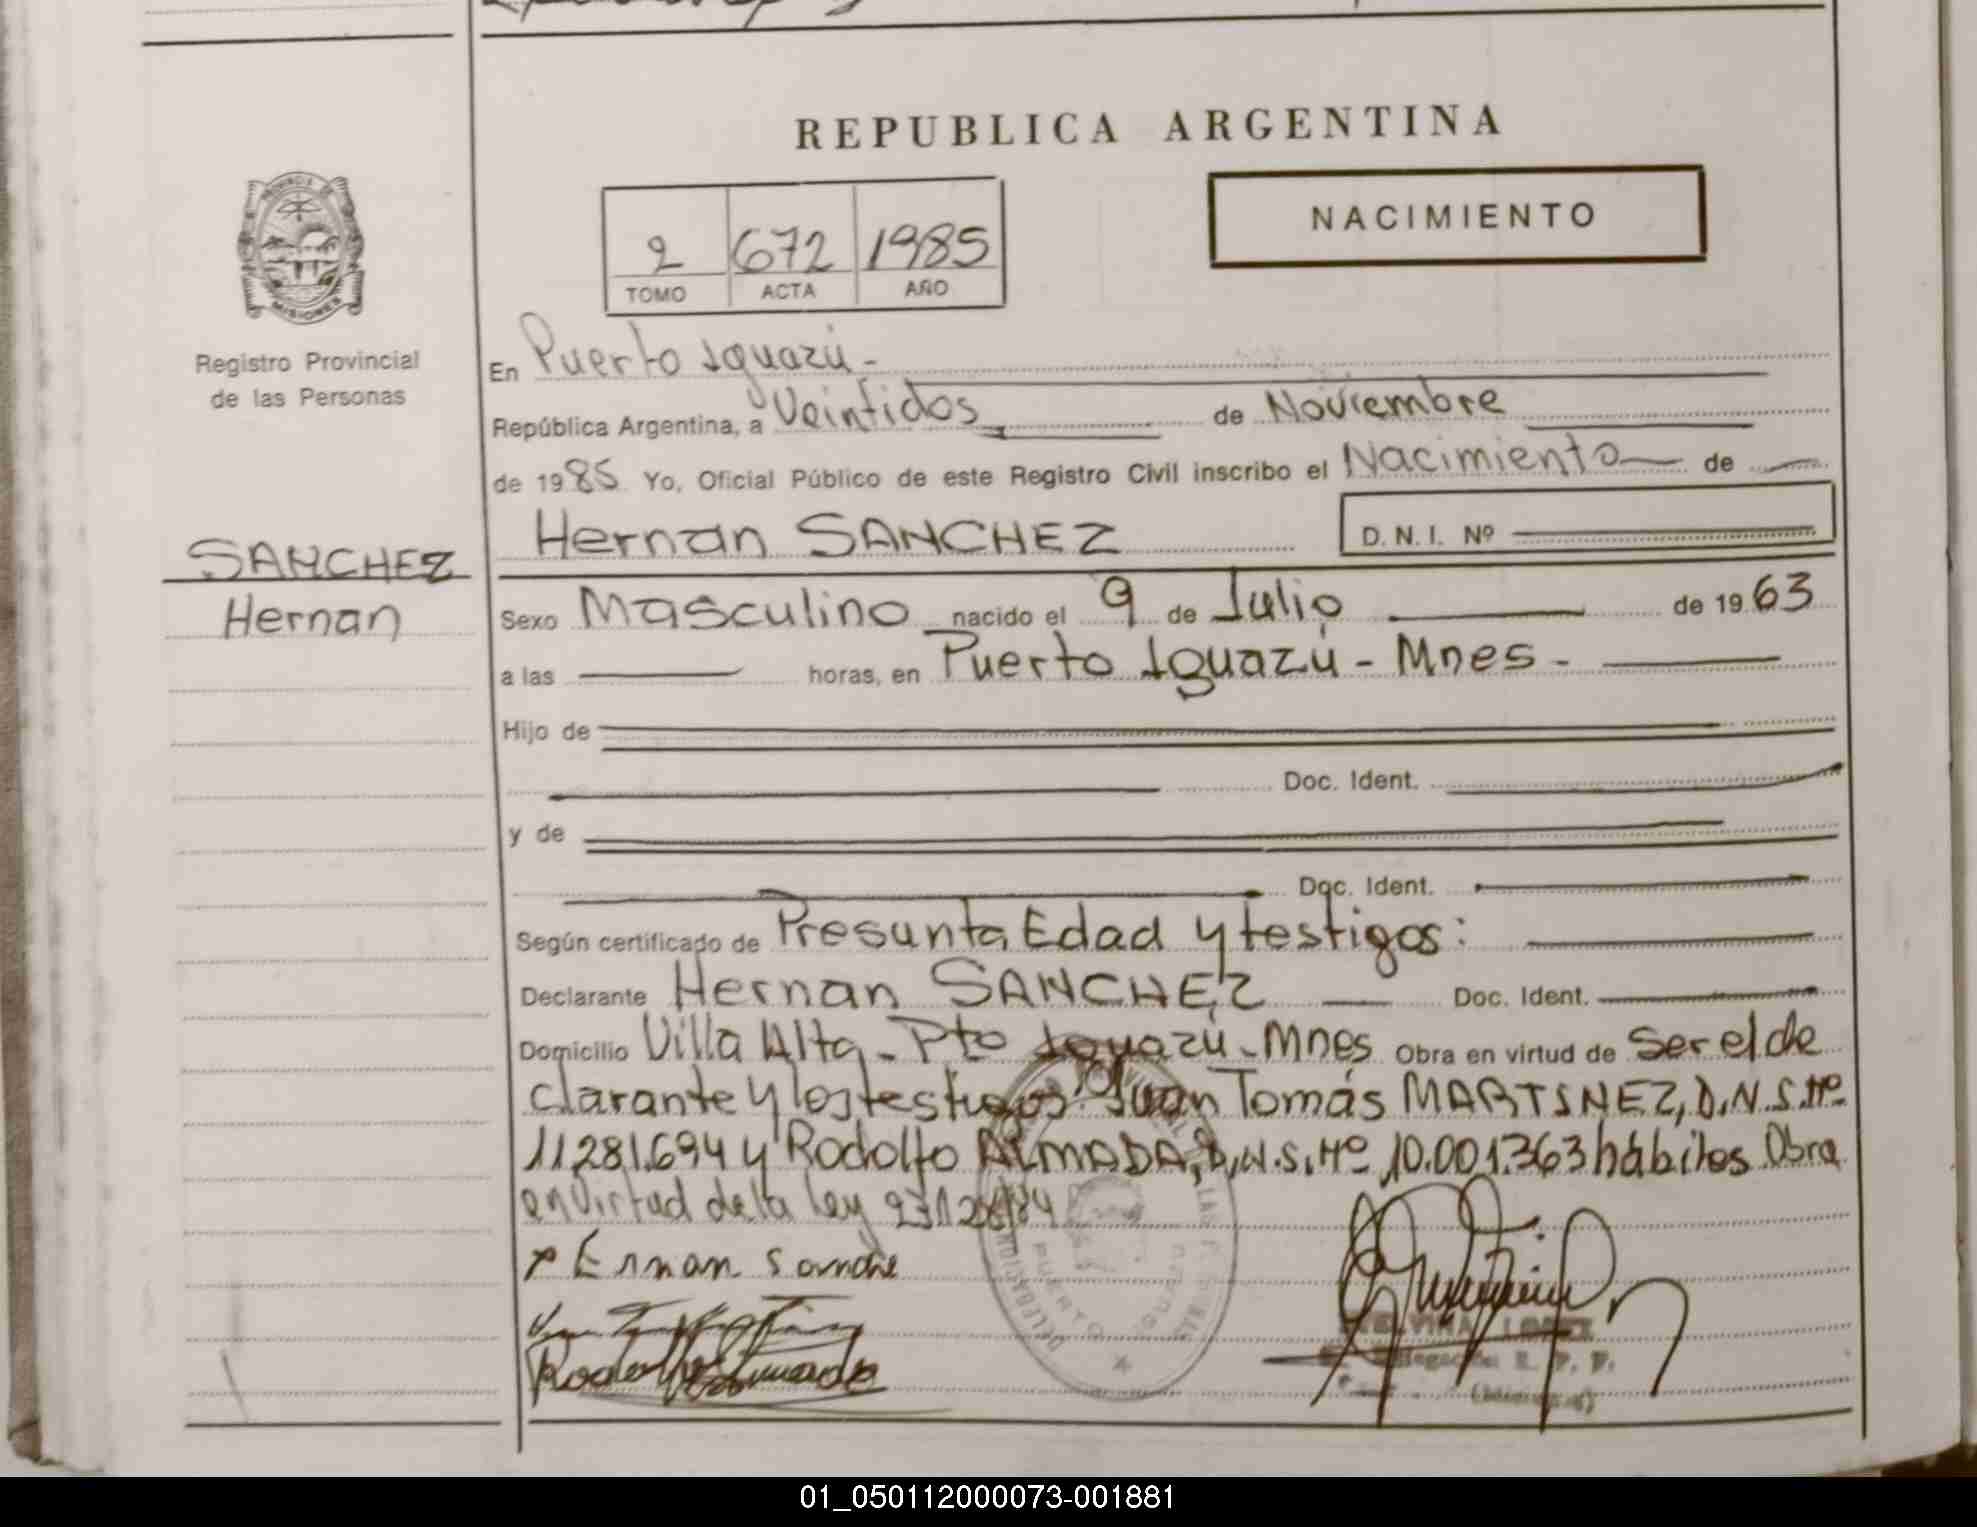 REPUBLICA ARGENTINA
PROVINCIA DE
MISIONES
2 672 1985
TOMO ACTA AÑO
NACIMIENTO
Registro Provincial
de las Personas
En Puerto Iguazú -
República Argentina, a Veintidos de Noviembre
de 1985 Yo, Oficial Público de este Registro Civil inscribo el Nacimiento de
SANCHEZ
Hernan
Hernan SANCHEZ D. N. I. Nº
Sexo Masculino nacido el 9 de Julio de 1963
a las horas, en Puerto Iguazú - Mnes -
Hijo de
Doc. Ident.
y de
Doc. Ident.
Según certificado de Presunta Edad y testigos:
Declarante Hernan SANCHEZ Doc. Ident.
Domicilio Villa Alta - Pto Iguazú - Mnes Obra en virtud de Ser el de
clarante y los testigos: Juan Tomás MARTINEZ, D.N.I. Nº
11281.694 y Rodolfo ALMADA, D.N.I. Nº 10.001.363 hábiles Obra
en Virtud de la ley 23128/84
x Ernan Sanche
Rodolfo Almada
LOPEZ
Delegación R. P. P.
(Misiones)
PUERTO IGUAZU
01_050112000073-001881